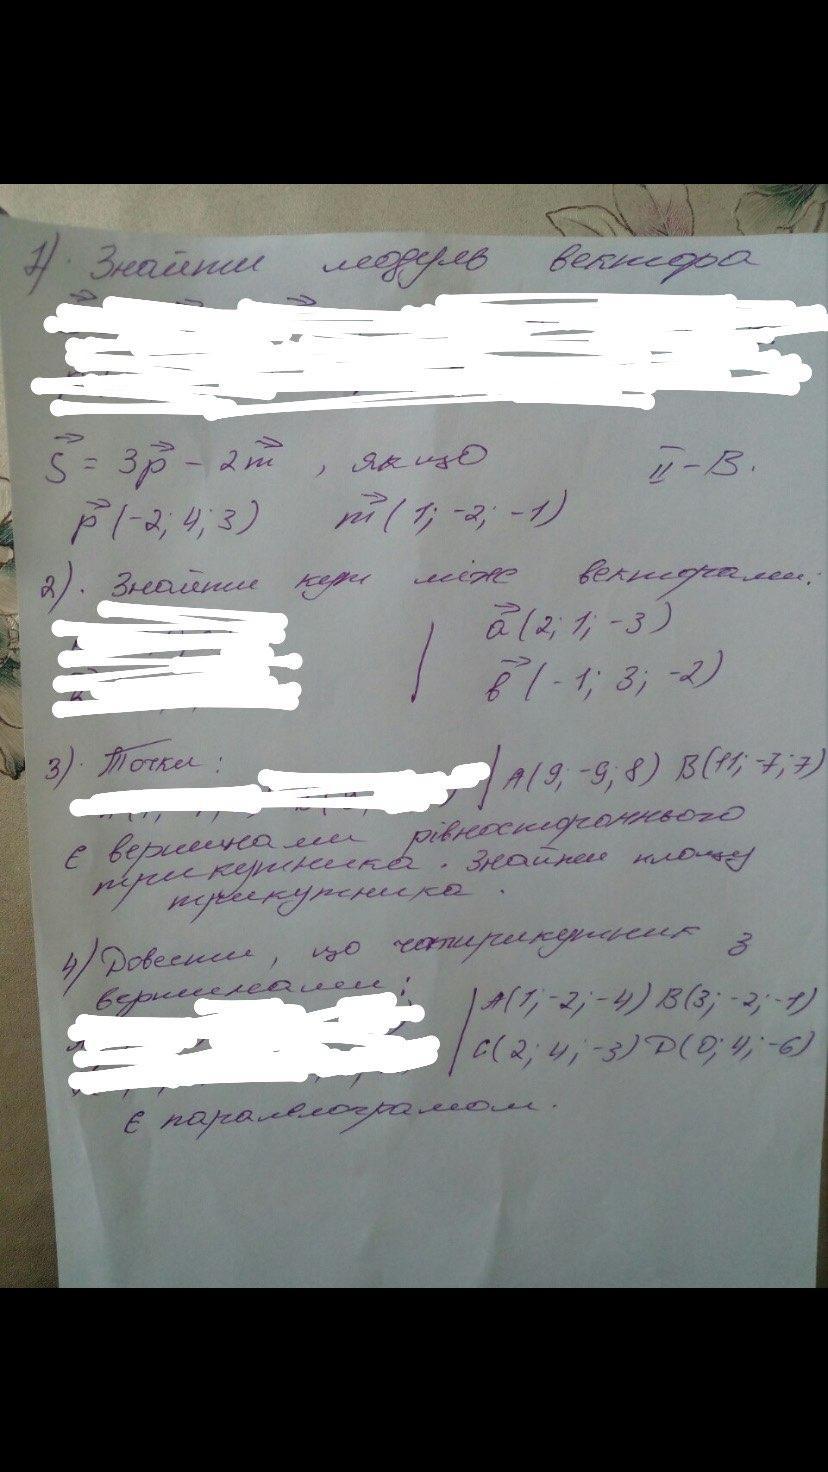 1). Знайти модуль вектора
s⃗ = 3p⃗ - 2m⃗ , якщо II-В.
p⃗ (-2; 4; 3) m⃗ (1; -2; -1)
2). Знайти кут між векторами:
a⃗ (2; 1; -3)
в⃗ (-1; 3; -2)
3). Точки:
A(9; -9; 8) B(11; -7; 7)
є вершинами рівностороннього
трикутника. Знайти площу
трикутника.
4) Довести, що чотирикутник з
вершинами:
A(1; -2; -4) B(3; -2; -1)
C(2; 4; -3) D(0; 4; -6)
є паралелограмом.